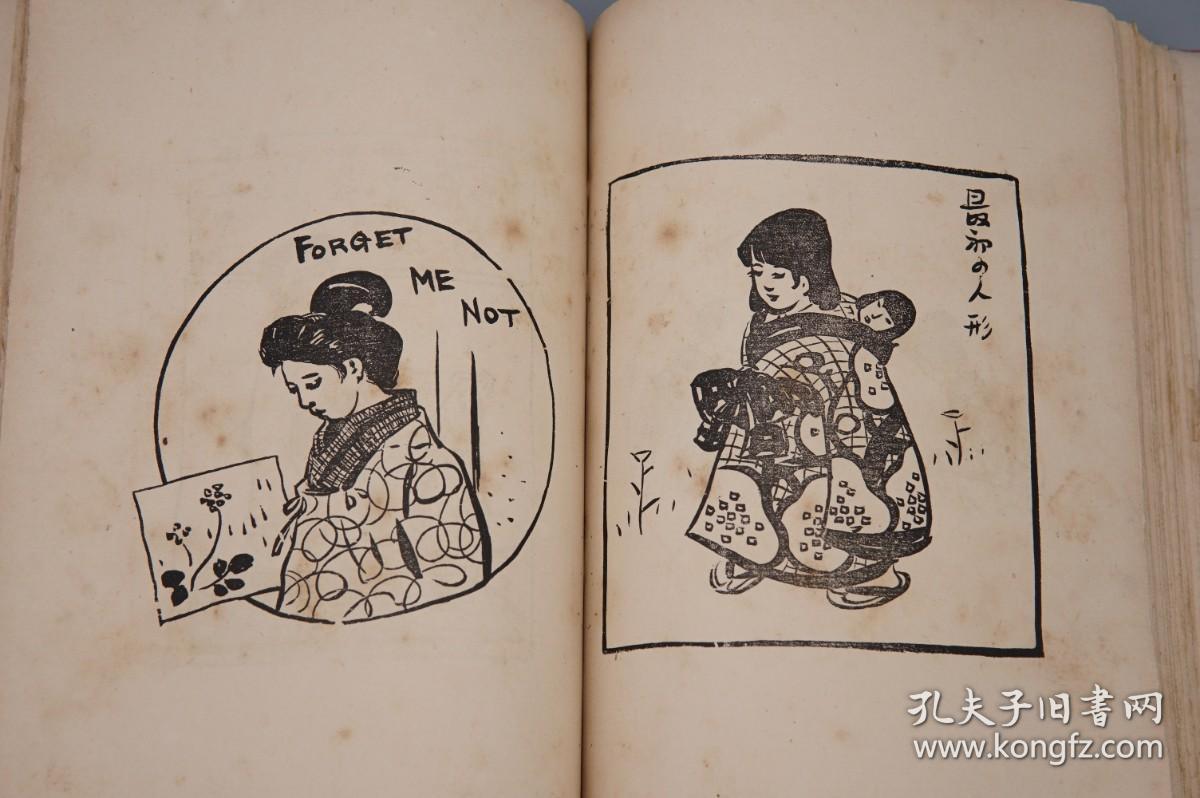 FORGET
ME
NOT
最初の人形
孔夫子旧书网
www.kongfz.com